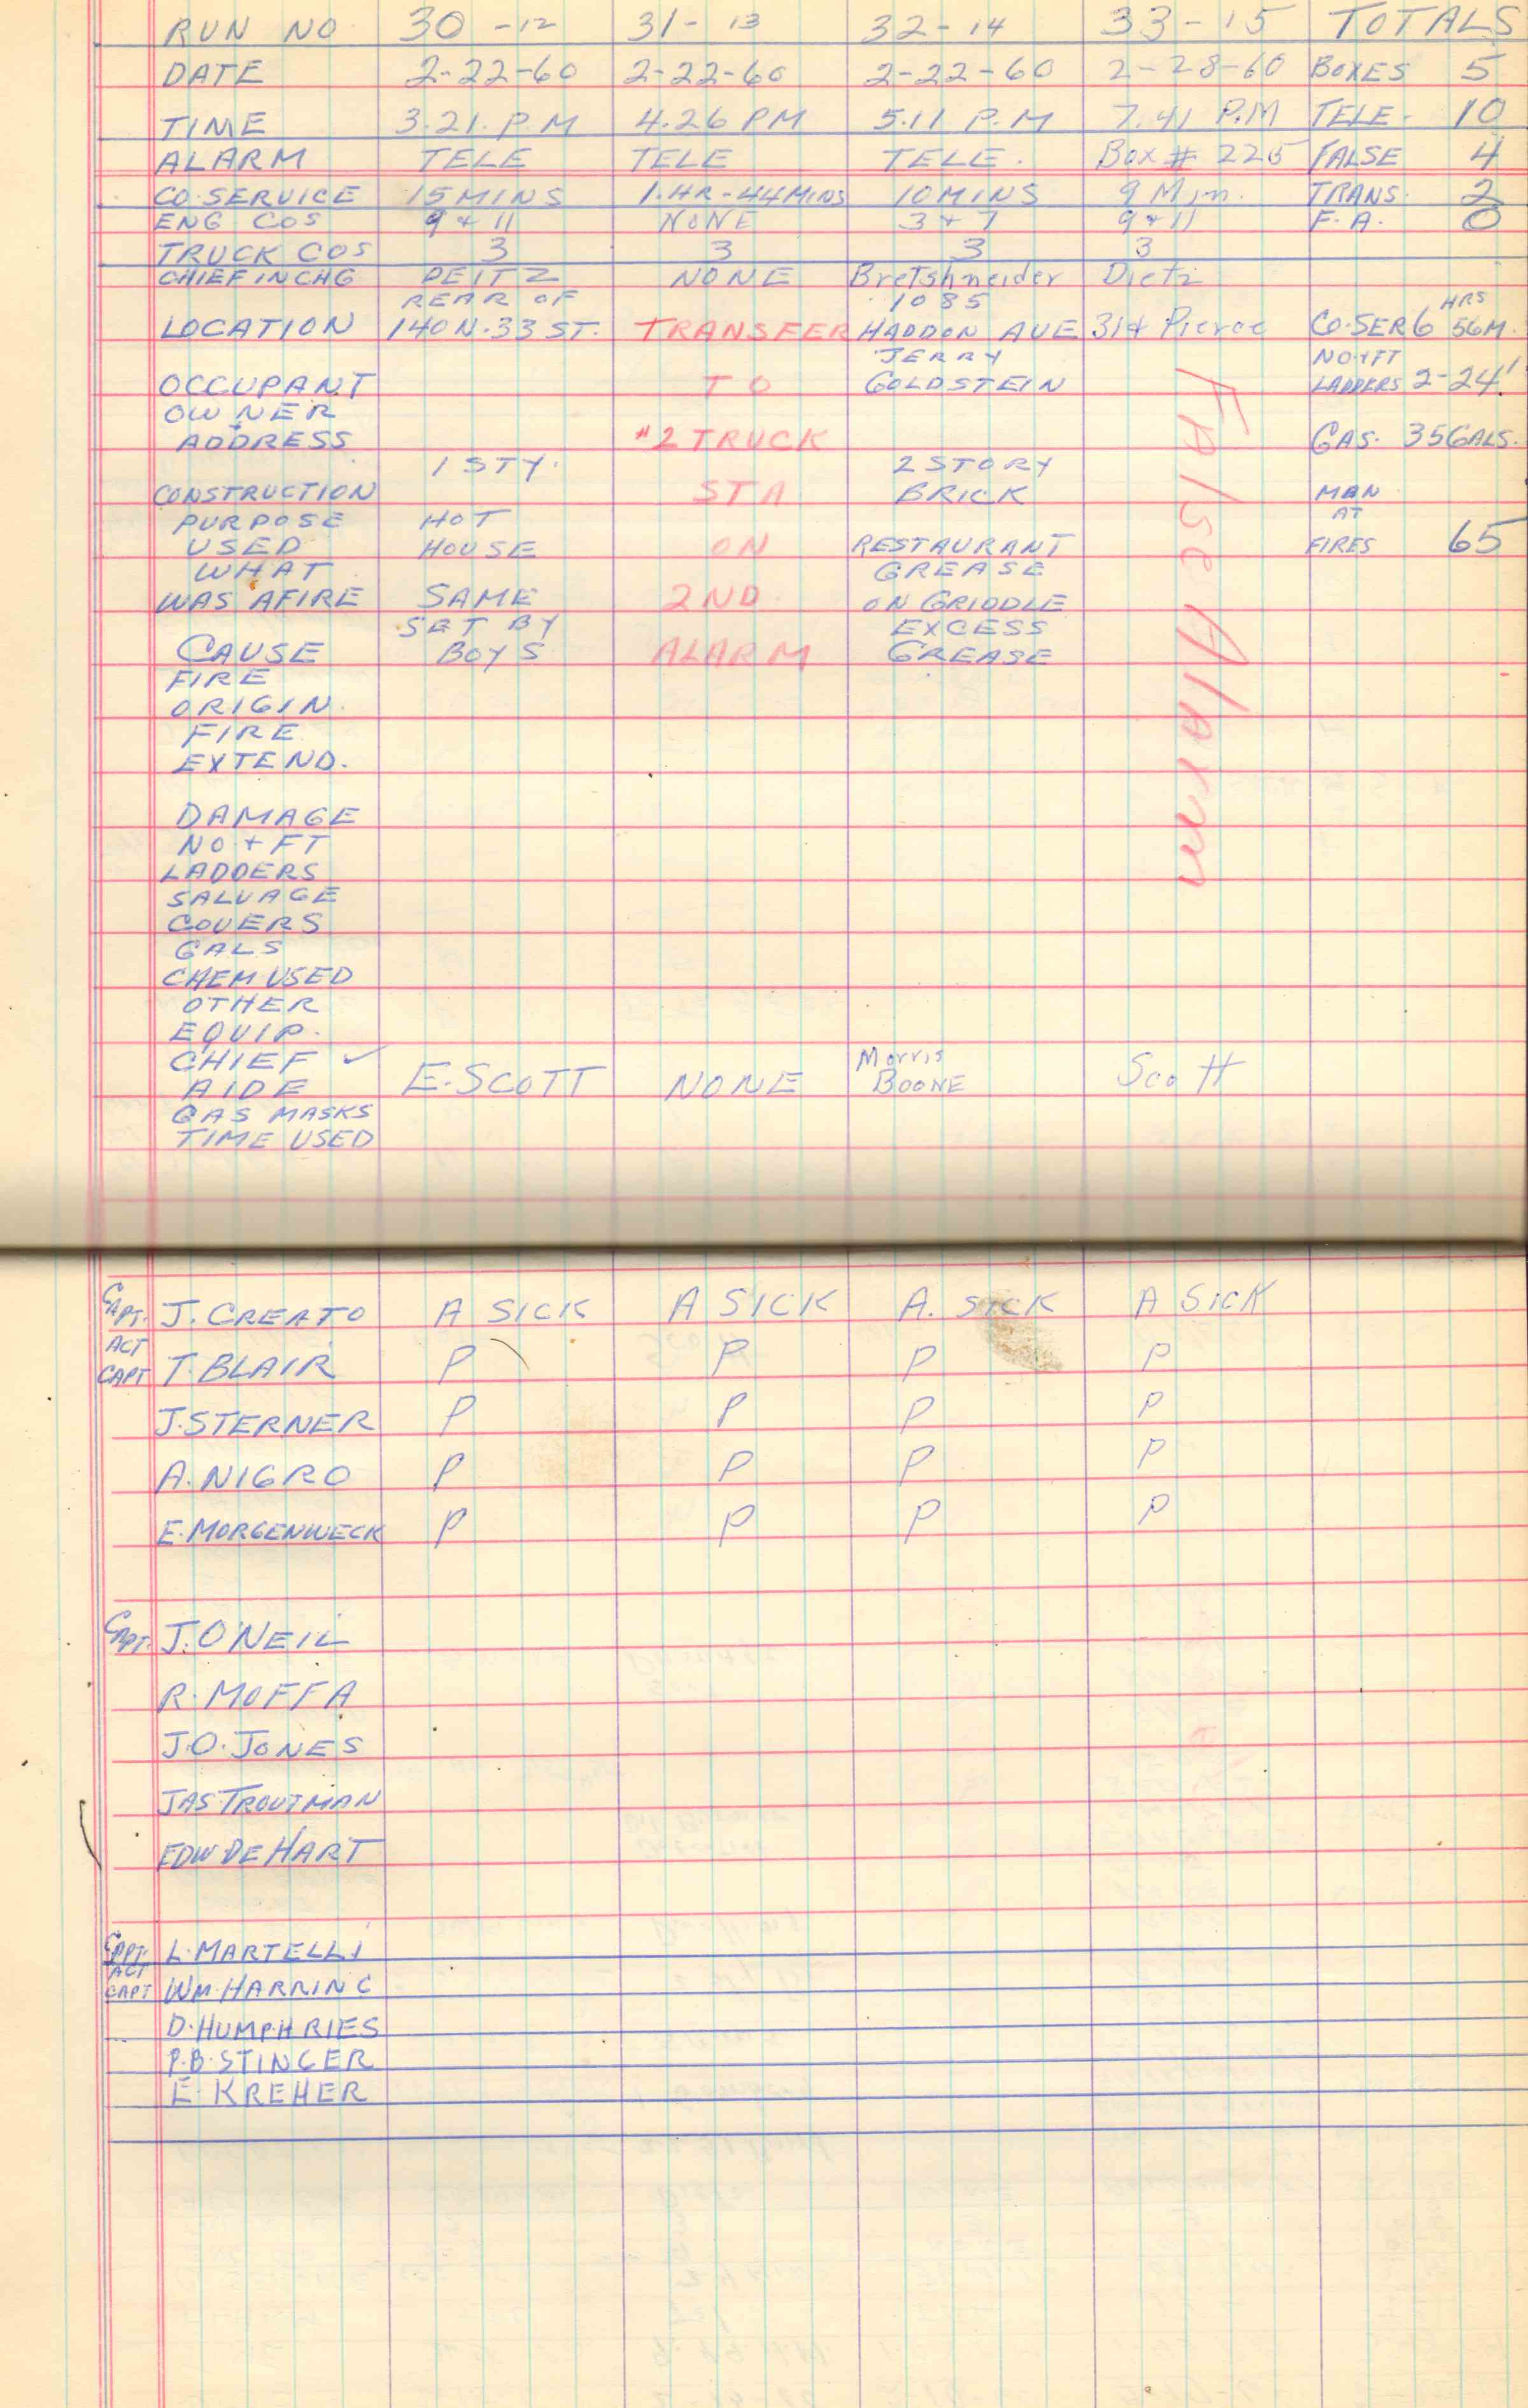 RUN NO 30 -12 31- 13 32-14 33-15 TOTALS
DATE 2-22-60 2-22-60 2-22-60 2-28-60 BOXES 5
TIME 3.21.P.M 4.26 PM 5.11 P.M 7.41 P.M TELE- 10
ALARM TELE TELE TELE. Box # 225 FALSE 4
CO.SERVICE 15 MINS 1.HR-44MINS 10 MINS 9 Min. TRANS. 2
ENG COS 9 + 11 NONE 3 + 7 9 + 11 F.A. 0
TRUCK COS 3 3 3 3
CHIEF IN CHG DEITZ NONE Bretshneider Dietz
REAR OF 1085 HRS
LOCATION 140 N.33 ST. TRANSFER HADDON AVE 314 Pierce CO.SER 6 56M.
JERRY NO+FT
OCCUPANT TO GOLDSTEIN LADDERS 2-24'
OWNER
ADDRESS #2 TRUCK GAS. 35GALS.
1 STY. 2 STORY
CONSTRUCTION STA BRICK MAN
PURPOSE HOT AT
USED HOUSE ON RESTAURANT FIRES 65
WHAT GREASE
WAS AFIRE SAME 2ND ON GRIDDLE
SET BY EXCESS
CAUSE BOYS ALARM GREASE
False Alarm
FIRE
ORIGIN.
FIRE
EXTEND.
DAMAGE
NO + FT
LADDERS
SALVAGE
COVERS
GALS
CHEM USED
OTHER
EQUIP.
CHIEF ✓ Morris
AIDE E.SCOTT NONE BOONE Scott
GAS MASKS
TIME USED
CAPT. J. CREATO A SICK A SICK A. SICK A SICK
ACT
CAPT T. BLAIR P P P P
J.STERNER P P P P
A.NIGRO P P P P
E.MORGENWECK P P P P
CAPT. J. O'NEIL
R. MOFFA
J.O. JONES
JAS TROUTMAN
EDW DE HART
CAPT. L. MARTELLI
ACT
CAPT WM. HARRING
D. HUMPHRIES
P.B. STINGER
E. KREHER